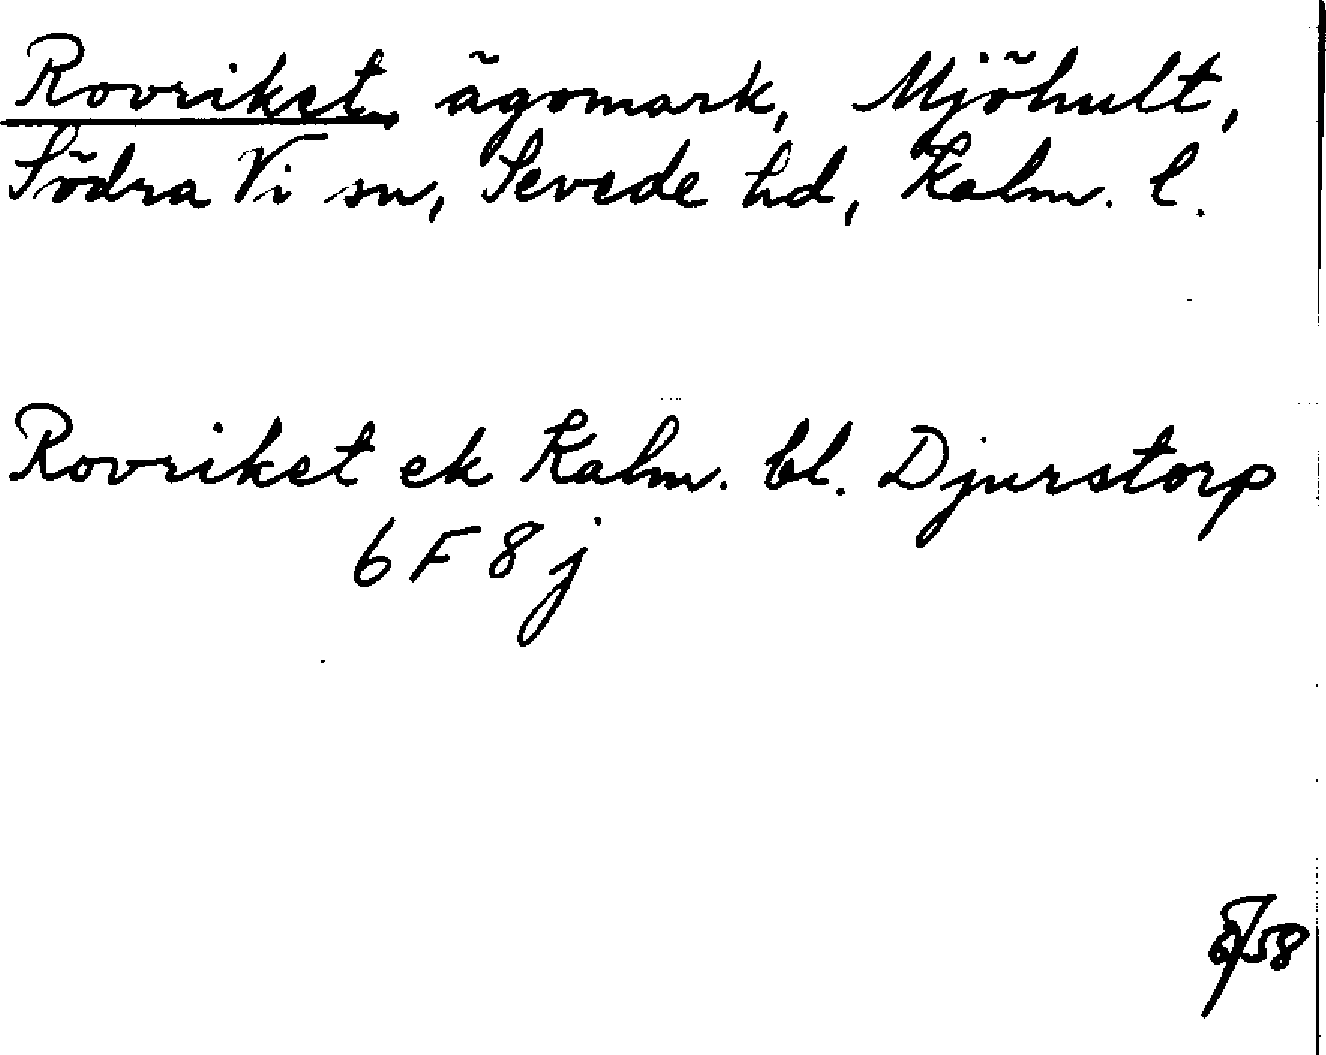 Rovriket, ägomark, Mjöhult,
Södra Vi sn, Sevede hd, Kalm. l.
Rovriket ek Kalm. bl. Djurstorp
6 F 8 j